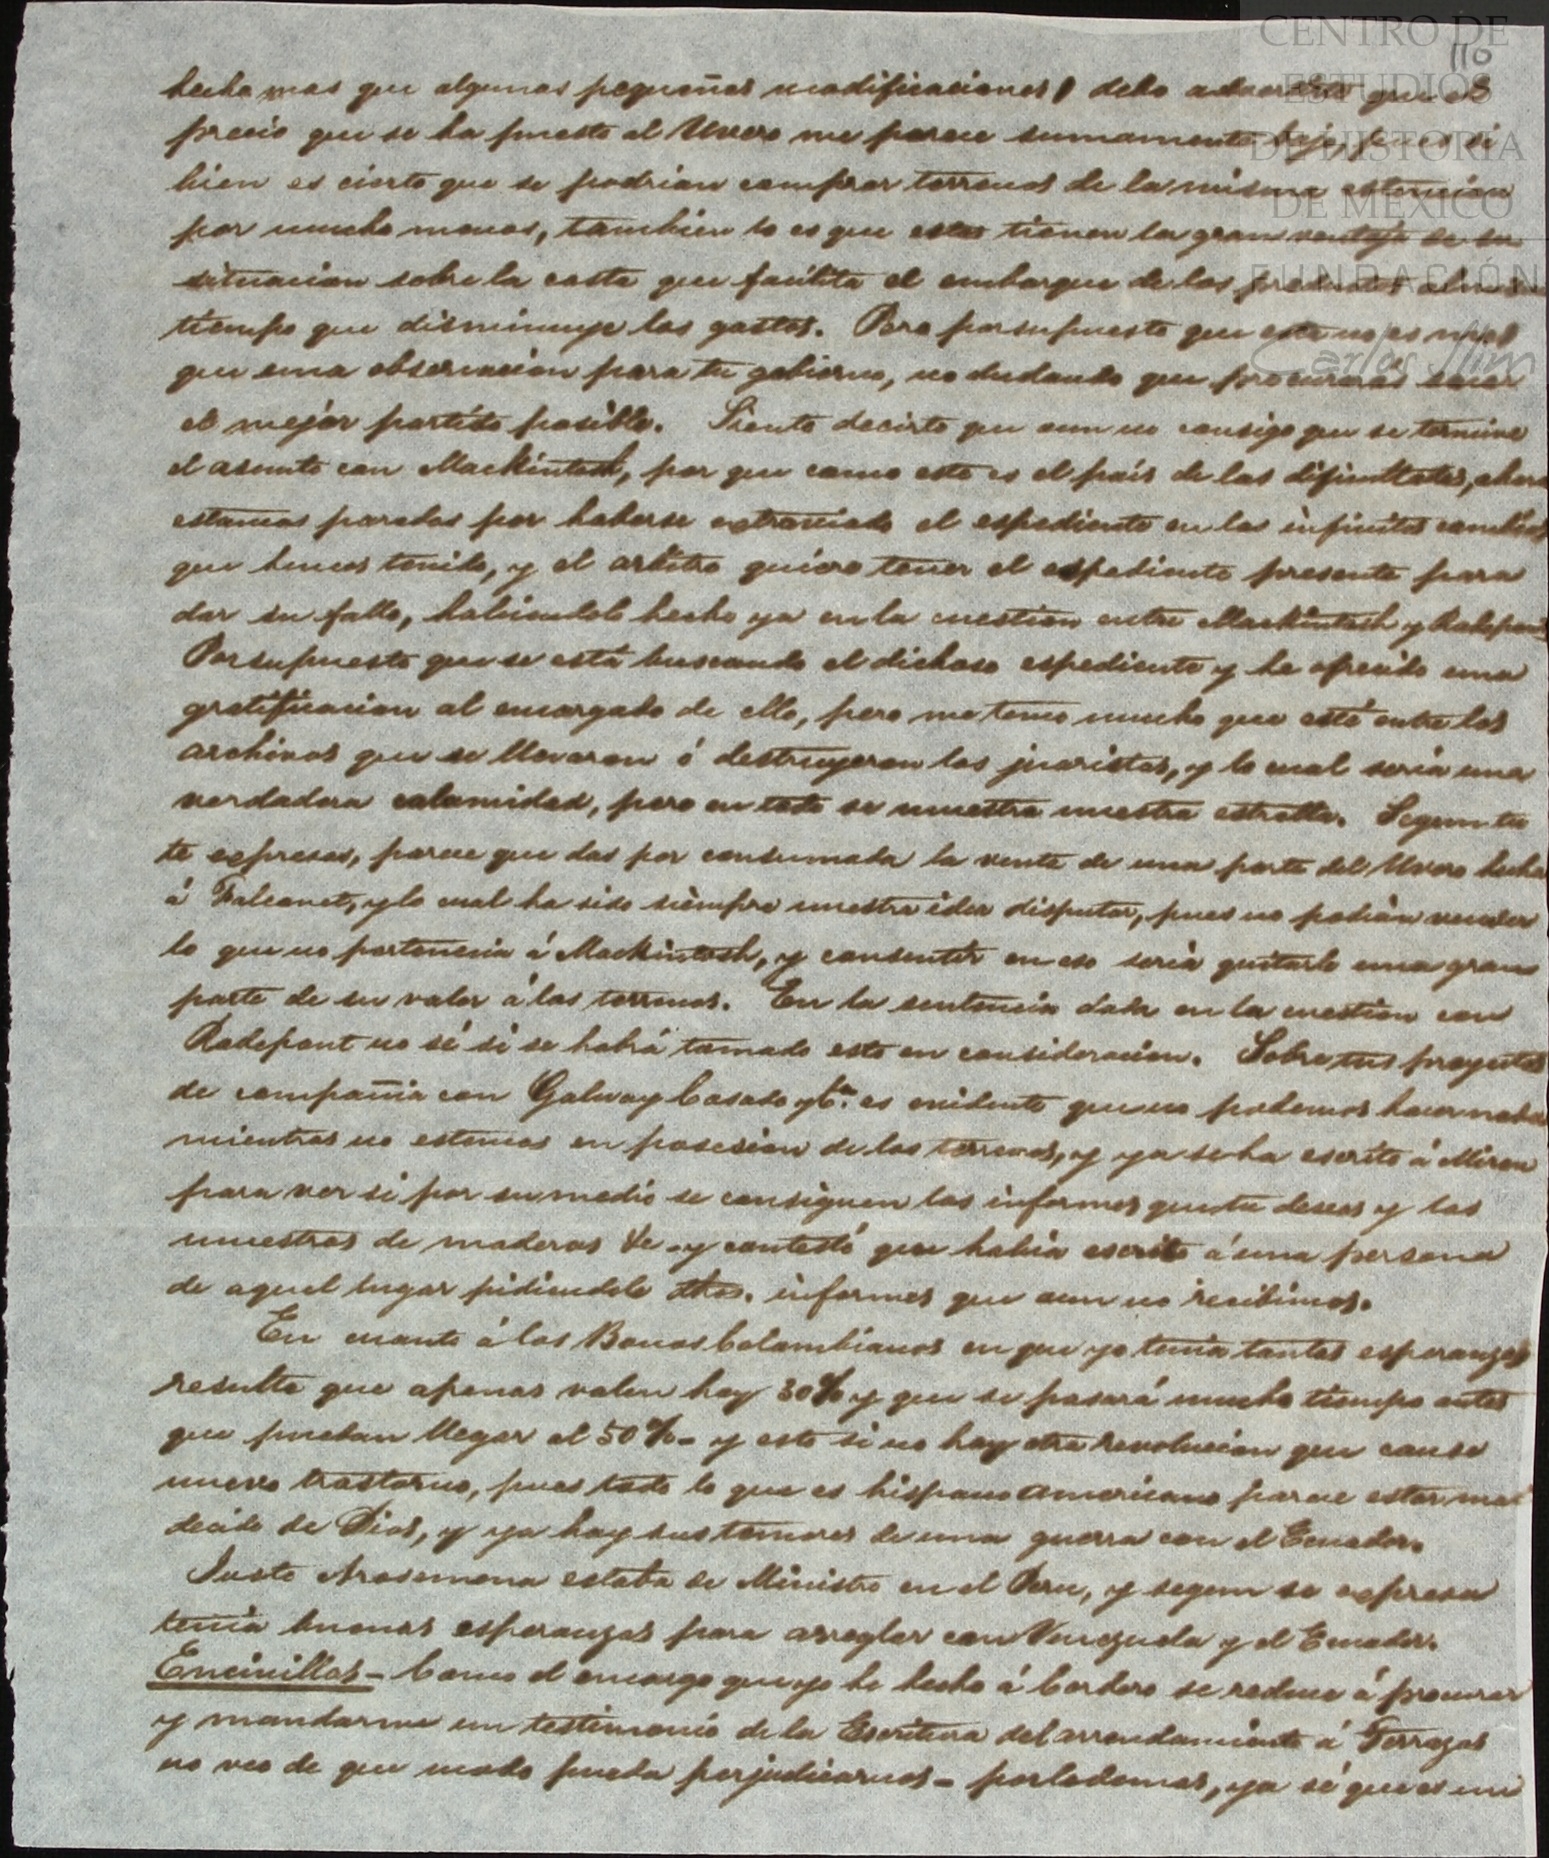 110
hecho mas que algunas pequeñas modificaciones) debo advertir que el
precio que se ha puesto al Uvero me parece sumamente bajo, pues si
bien es cierto que se podrian comprar terrenos de la misma estencion
por mucho menos, tambien lo es que estos tienen la gran ventaja de su
situacion sobre la costa que facilita el embarque de los productos al mismo
tiempo que disminuye los gastos. Pero por supuesto que esta no es mas
que una observacion para tu gobierno, no dudando que procuraras sacar
el mejor partido posible. Siento decirte que aun no consigo que se termine
el asunto con Mackintosh, por que como este es el país de las dificultades, ahora
estamos parados por haberse extraviado el espediente en los infinitos cambios
que hemos tenido, y el arbitro quiere tener el espediente presente para
dar su fallo, habiendolo hecho ya en la cuestion entre Mackintosh y Radepont
Por supuesto que se está buscando el dichoso espediente y he ofrecido una
gratificacion al encargado de ello, pero me temo mucho que esté entre los
archivos que se llevaron ó destruyeron los juaristas, y lo cual seria una
verdadera calamidad, pero en todo se muestra nuestra estrella. Segun tu
te espresas, parece que das por consumada la venta de una parte del Uvero hecha
á Falconet, y lo cual ha sido siempre nuestra idea disputar, pues no podián vender
lo que no pertenecia á Mackintosh, y consentir en eso seria quitarle una gran
parte de su valor á los terrenos. En la sentencia dada en la cuestion con
Radepont no sé si se habrá tomado esto en consideracion. Sobre tus proyectos
de compañia con Galway Casado y Ca. es evidente que no podemos hacer nada
mientras no estemos en posesion de los terrenos, y ya se ha escrito á Miron
para ver si por su medio se consiguen los informes que tu deseas y las
muestras de maderas &c. y contestó que habia escrito á una persona
de aquel lugar pidiendole dhos. informes que aun no recibimos.
En cuanto á los Bonos Colombianos en que yo tenia tantas esperanzas
resulta que apenas valen hoy 30% y que se pasará mucho tiempo antes
que puedan llegar al 50%- y esto si no hay otra revolucion que cause
nuevo trastorno, pues todo lo que es hispano americano parece estar mal
decido de Dios, y ya hay sus temores de una guerra con el Ecuador.
Justo Arosemena estaba de Ministro en el Peru, y segun se espresa
tenia buenas esperanzas para arreglar con Venezuela y el Ecuador.
Encinillas - Como el encargo que yo he hecho á Cordero se reduce á procurar
y mandarme un testimonio de la Escritura del arrendamiento á Terrazas
no veo de que modo pueda perjudicarnos - por lo demas, ya sé que es mi
CENTRO DE
ESTUDIOS
DE HISTORIA
DE MÉXICO
FUNDACIÓN
Carlos Slim